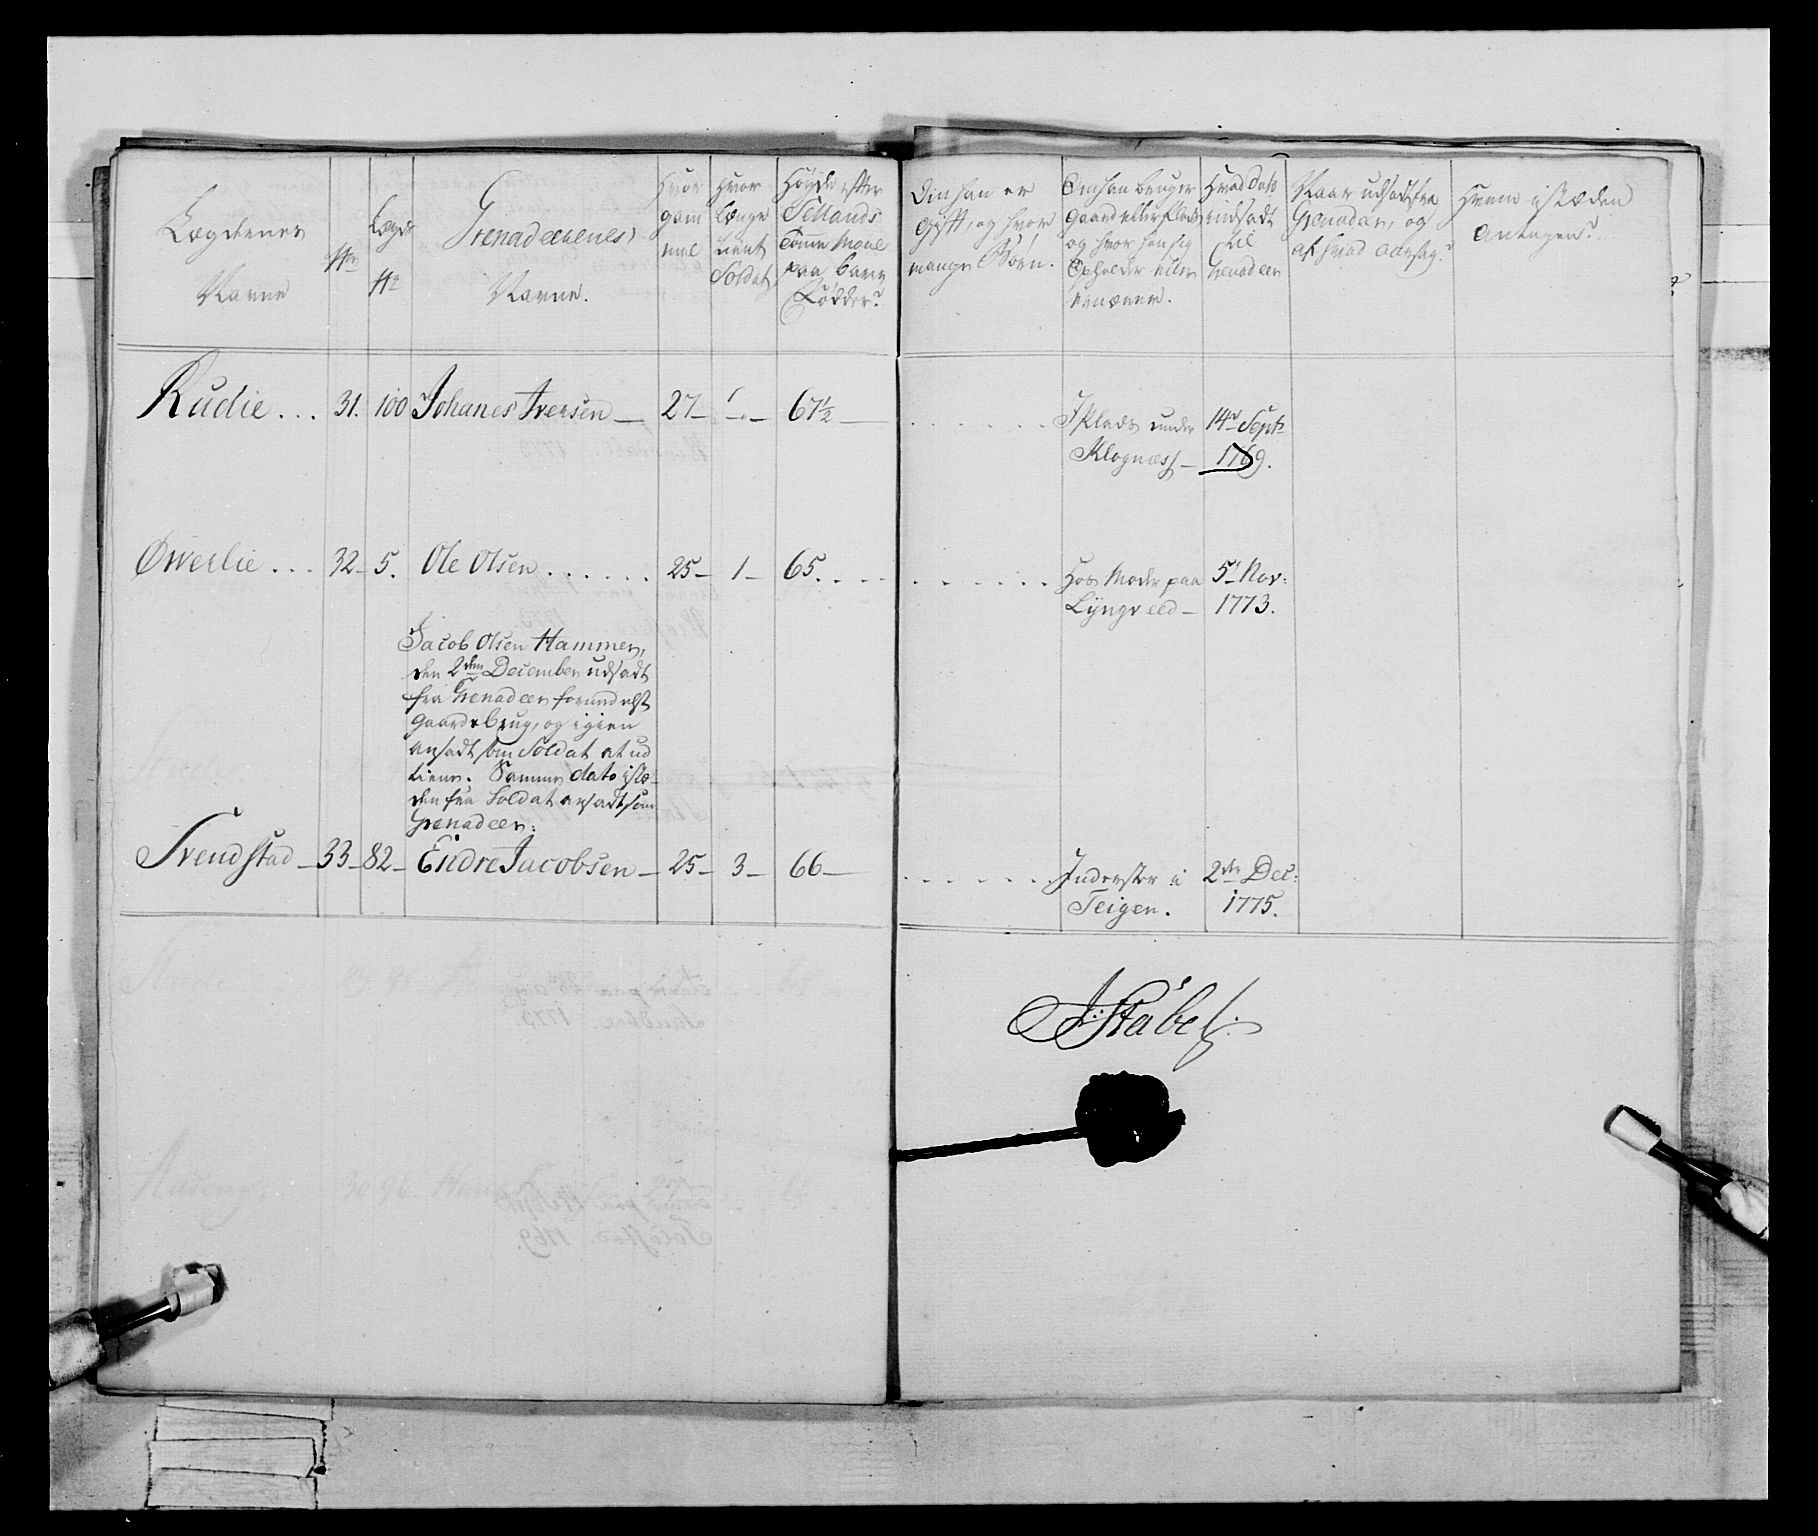 Lægdenes Navne
No
Lægds No
Grenadeerenes Navne.
Hvor gam mel
Hvor længe tient Soldat
Høyde efter Sellands Tomme Maal paa bare Födder?
Om han er Gift, og hvor mange Börn.
Om han bruger Gaard eller Plads og hvor han sig Opholder eller ernærer.
Hvad Dato indsadt til Grenadeer
Naar udsadt fra Grenadeer, og af hvad Aarsag?
Hvem i stæden Antagen?
Rudie . . . 31. 100 Johanes Iversen — 27 — 1 — 67½ — . . . . . . I Plads under 14de Sept:
Klognæs — 1769.
Øwerlie . . . 32 — 5. Ole Olsen . . . . . . 25 — 1 — 65. . . . . . . . . . Hos Moder paa 5te Nov:
Lyngveld — 1773.
Jacob Olsen Hammer,
den 2den December udsadt
fra Grenadeer formedelst
Gaardebrug, og igien
ansadt som Soldat at ud
tiene. Samme dato istæ-
den fra Soldat ansadt som
Grenadeer:
Svendstad — 33 — 82 — Endre Jacobsen — 25 — 3 — 66 — . . . . . . Inderster i 2den Dec:
Teigen. 1775.
J: Stabel: